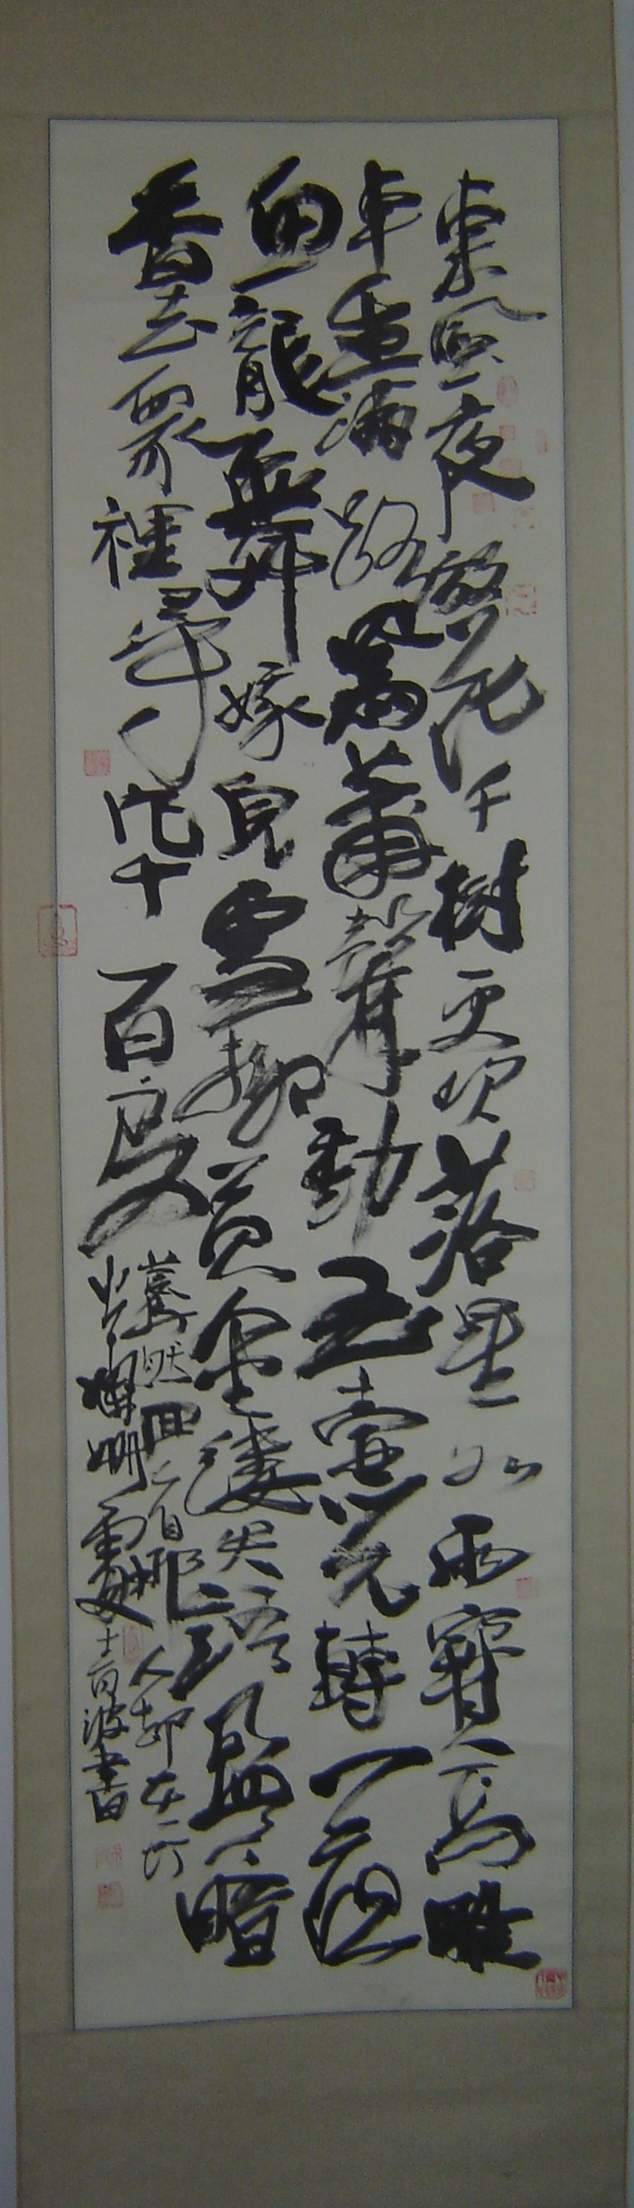 東風夜放花千樹更吹落星如雨寶馬雕
車香滿路鳳簫聲動玉壺光轉一夜
魚龍舞蛾兒雪柳黃金縷笑語盈盈暗
香去眾裡尋他千百度
驀然回首那人却在灯
火斕珊處 波書